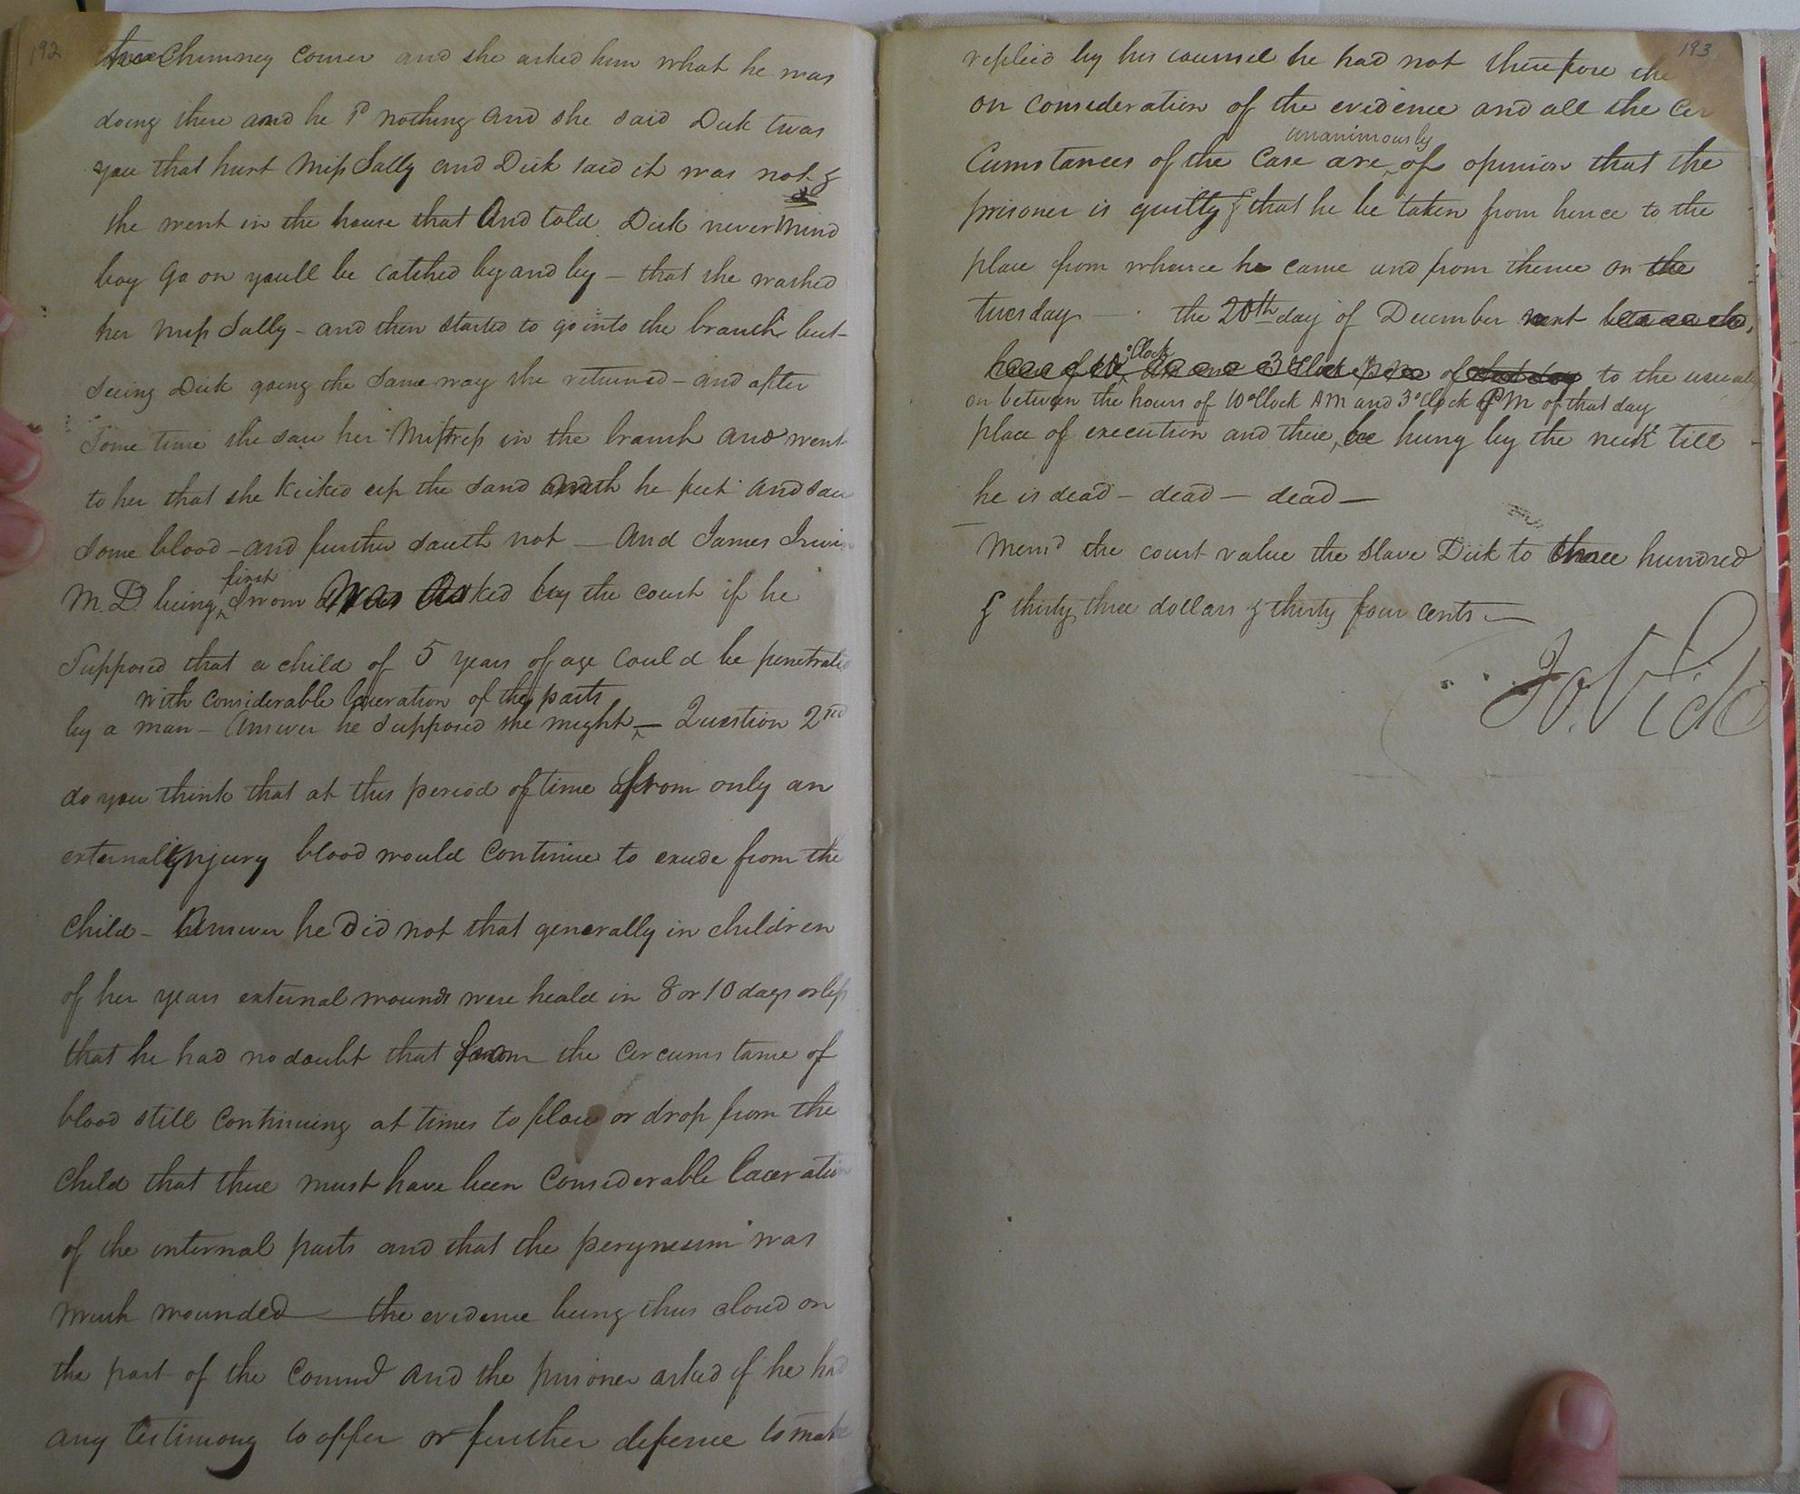 192
the Chimney Corner and she asked him what he was
doing there and he sd nothing and she said Dick twas
you that hurt Miss Sally and Dick said it was not &
she went in the house that And told Dick never Mind
boy Go on youll be catched by and by - that she washed
her Miss Sally - and then started to go into the branch but
seeing Dick going the same way she returned - and after
Some time she saw her Mistress in the branch and went
to her that she kicked up the sand with he feet and saw
some blood - and further saith not - And James Irvin
first
M.D. being sworn Was Asked by the court if he
Supposed that a child of 5 years of age could be penetrated
with considerable laceration of the parts
by a man - Answer he supposed she might - Question 2nd
do you think that at this period of time from only an
external injury blood would continue to exude from the
child - Answer he Did not that generally in children
of her years external wounds were heald in 8 or 10 days or less
that he had no doubt that from the circumstance of
blood still continuing at times to flow or drop from the
child that there must have been considerable laceration
of the internal parts and that the peryneum was
much wounded - the evidence being thus closd on
the part of the Commd and the prisoner asked if he had
any testimony to offer or further defence to make
193
replied by his counsel he had not therefore the
on consideration of the evidence and all the cir
unanimously
cumstances of the case are of opinion that the
prisoner is guilty & that he be taken from hence to the
place from whence he came and from thence on the
tuesday - the 20th day of December next between the
oClock
3 oClock of that day to the usual
on between the hours of 10 oClock AM and 3 oClock PM of that day
place of execution and there be hung by the neck till
he is dead - dead - dead -
Memd the court value the slave Dick to three hundred
& thirty three dollars & thirty four cents -